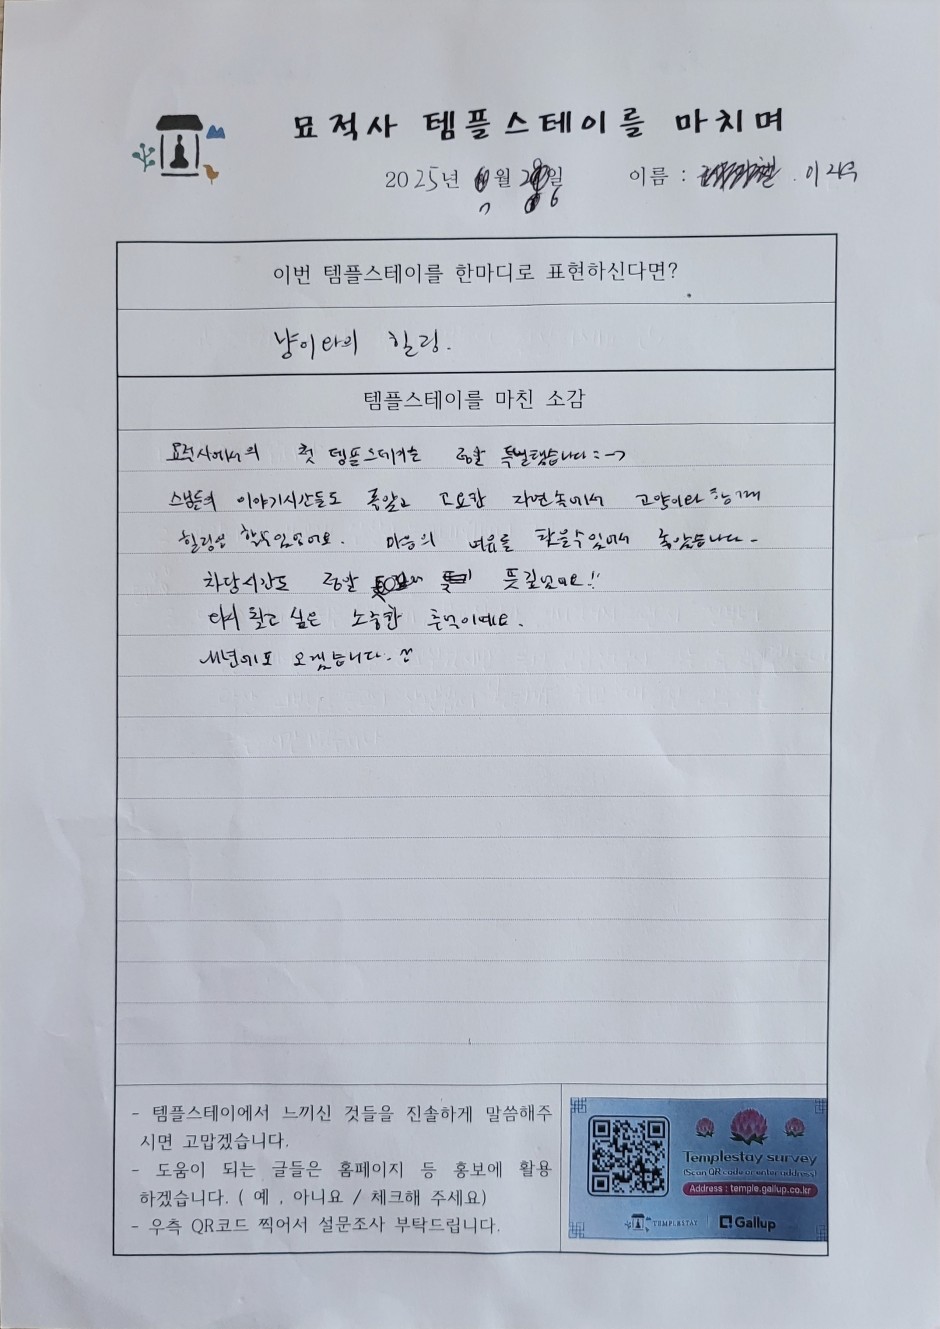 묘적사 템플스테이를 마치며
2025년 7월 6일 이름 : 이
이번 템플스테이를 한마디로 표현하신다면?
냥이와의 힐링.
템플스테이를 마친 소감
묘적사에서의 첫 템플스테이는 정말 특별했습니다 :->
스님들의 이야기시간들도 좋았고 고요한 자연속에서 고양이와 함께
힐링을 할수있었어요. 마음의 여유를 찾을수있어서 좋았습니다-
차담시간도 정말 뜻깊었어요!!
다시 찾고 싶은 소중한 추억이예요.
내년에도 오겠습니다. ^^
- 템플스테이에서 느끼신 것들을 진솔하게 말씀해주
시면 고맙겠습니다.
- 도움이 되는 글들은 홈페이지 등 홍보에 활용
하겠습니다. ( 예 , 아니요 / 체크해 주세요)
- 우측 QR코드 찍어서 설문조사 부탁드립니다.
Templestay survey
(Scan QR code or enter address)
Address : temple.gallup.co.kr
TEMPLESTAY Gallup